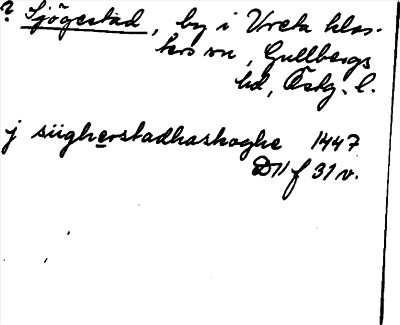 ? Sjögestad, by i Vreta klos-
ters sn, Gullbergs
hd, Östg. l.
j siigherstadhaskoghe 1447
D11 f 31 v.